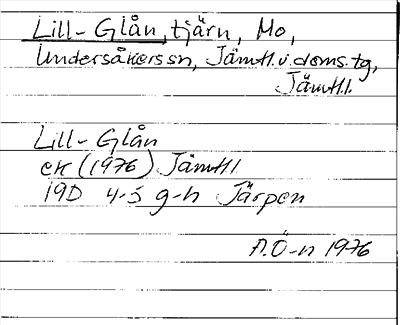 Lill-Glån, tjärn, Mo,
Undersåkers sn, Jämtl. v. doms. tg,
Jämtl.
Lill-Glån
ek (1976) Jämtl.
19D 4-5 g-h Järpen
A.Ö-n 1976